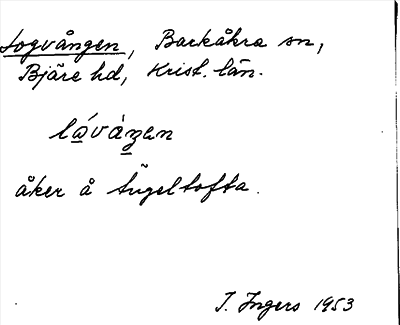 Logvången, Barkåkra sn,
Bjäre hd, Krist. län.
åker å Tügeltofta.
I. Ingers 1953